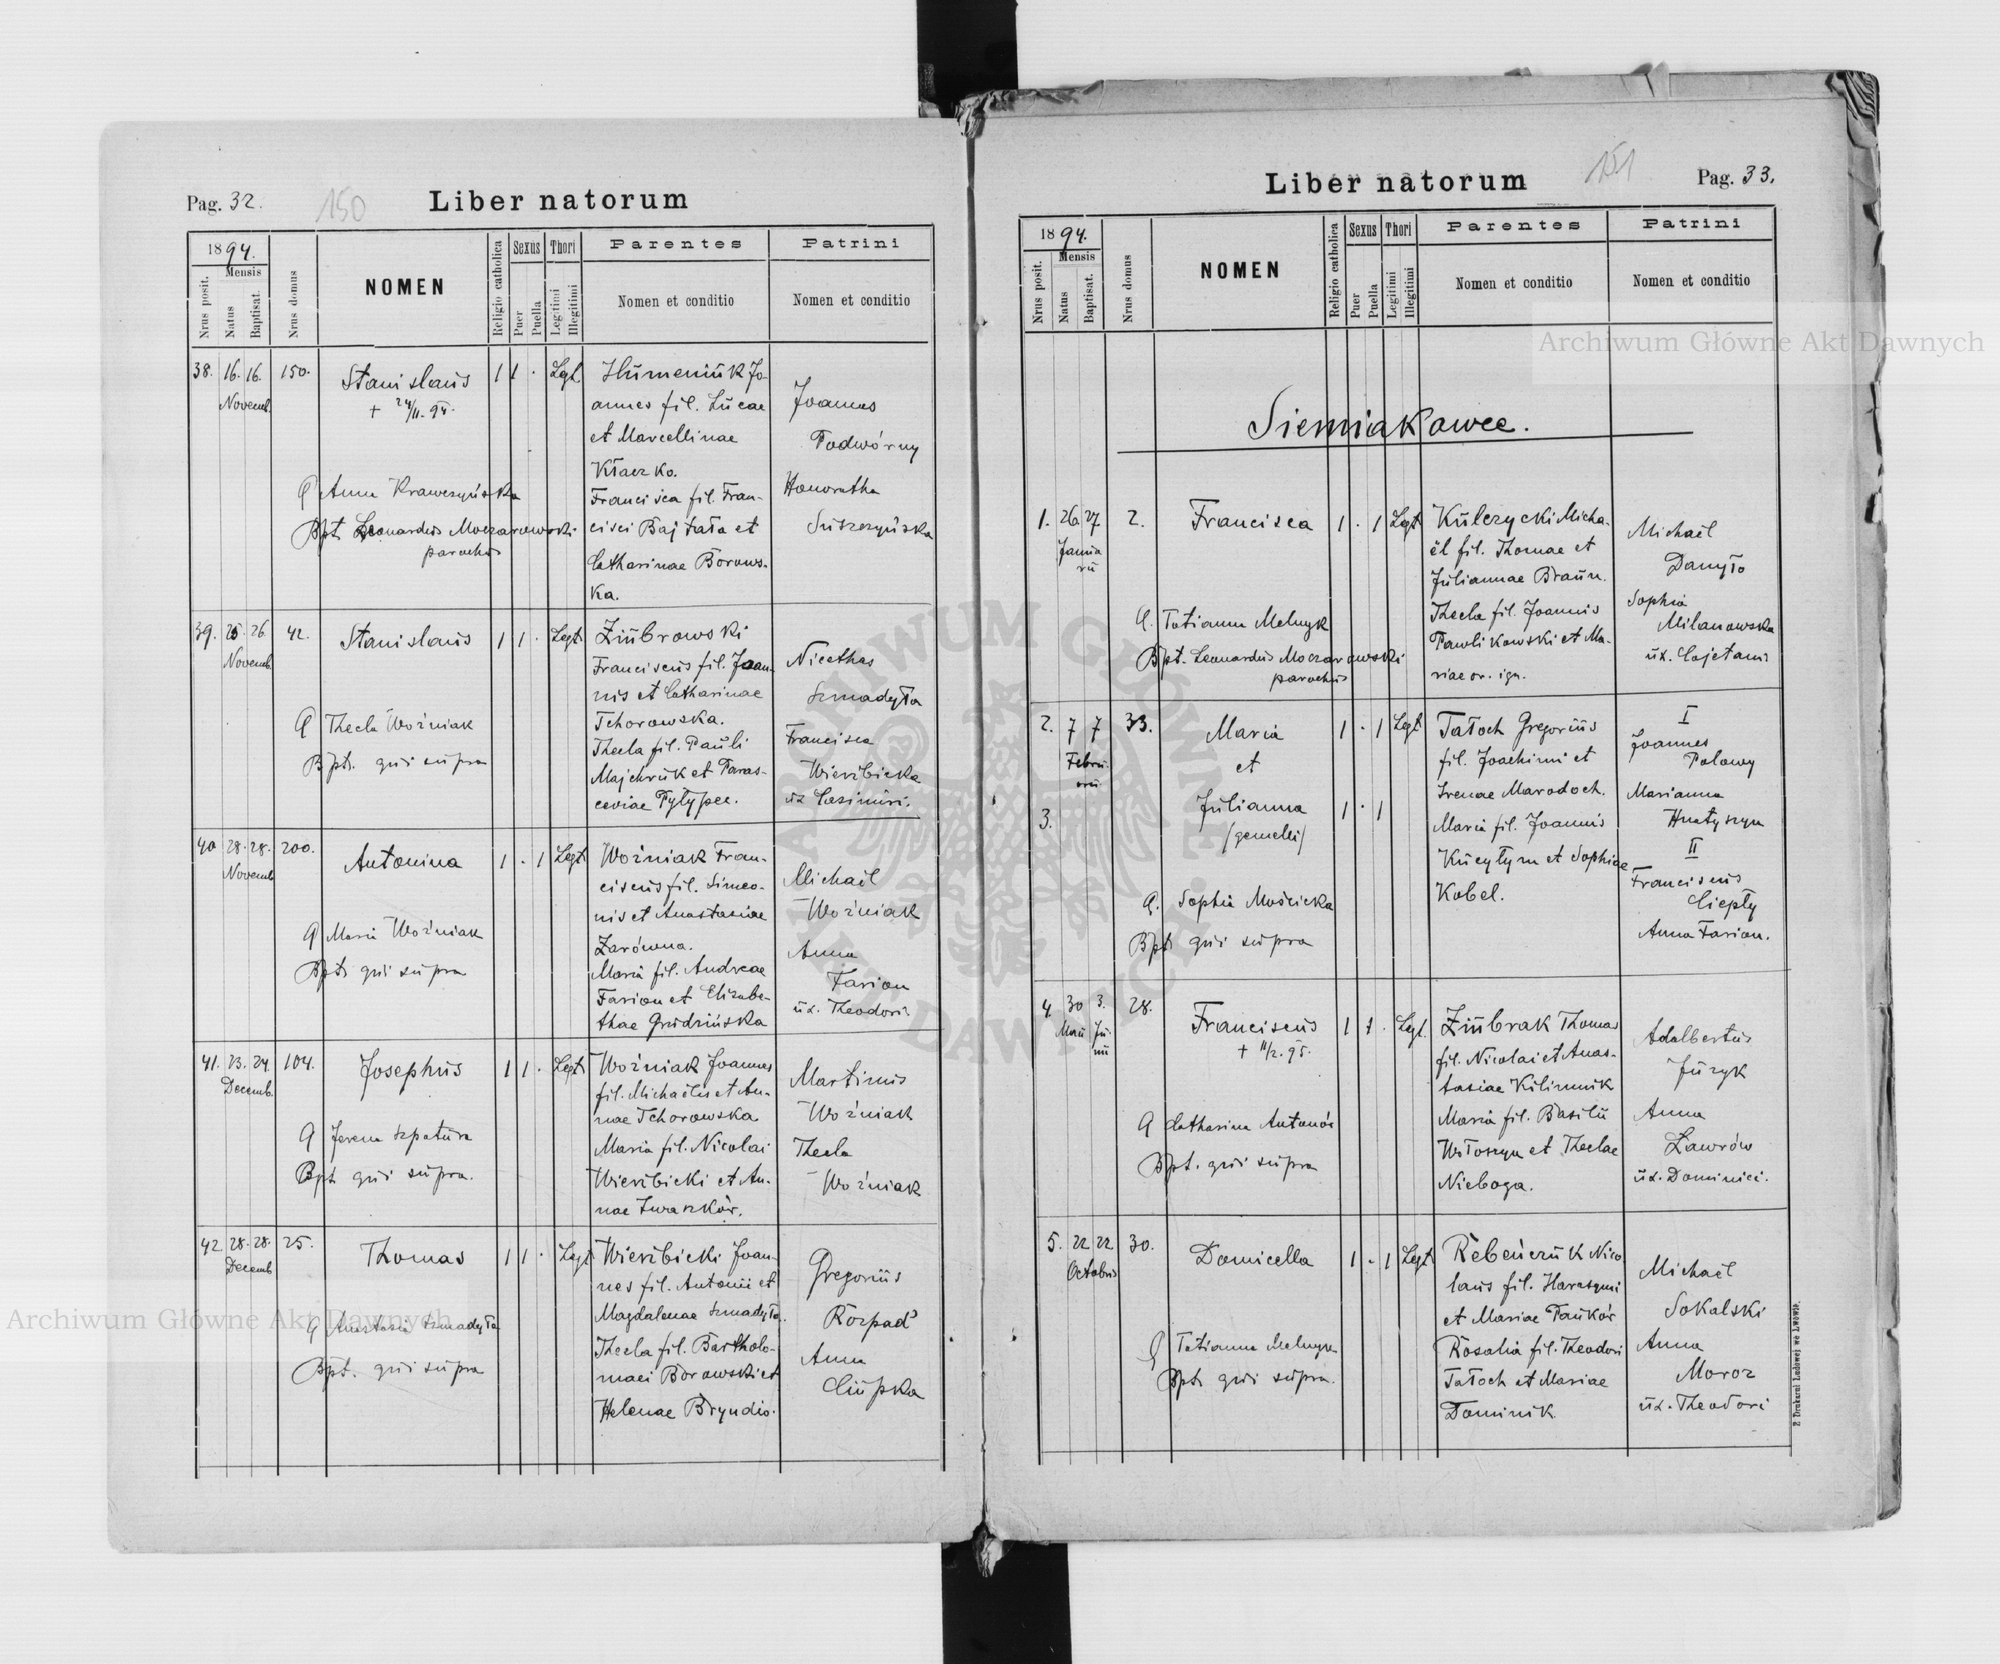 Pag. 32.
150
Liber natorum
1894.
Nrus posit.
Mensis
Natus
Baptisat.
Nrus domus
NOMEN
Religio catholica
Sexus
Puer
Puella
Thori
Legitimi
Illegitimi
Parentes
Nomen et conditio
Patrini
Nomen et conditio
38. 16. 16. 150. Stanislaus 1 1 · Legt.
Novemb.
+ 24/11. 95.
Anna Krawczyńska
Bpt. Leonardus Moczarowski
parochus
Humeniuk Jo-
annes fil. Lucae
et Marcellinae
Kłaczko.
Francisca fil. Fran-
cisci Bajtała et
Catharinae Borows-
ka.
Joannes
Podwórny
Honoratha
Suszczyńska
39. 25. 26. 42. Stanislaus 1 1 · Legt.
Novemb.
Thecla Woźniak
Bpt. qui supra
Ziubrowski
Franciscus fil. Joan-
nis et Catharinae
Tchorowska.
Thecla fil. Pauli
Majchruk et Paras-
ceviae Pyłypec.
Nicethas
Szmadyła
Francisca
Wierzbicka
ux Casimiri.
40 28. 28. 200. Antonina 1 · 1 Legt.
Novemb
Maria Woźniak
Bpt. qui supra
Woźniak Fran-
ciscus fil. Simeo-
nis et Anastasiae
Zarówna.
Maria fil. Andreae
Farion et Elizabe-
thae Grudzińska
Michaël
Woźniak
Anna
Farion
ux. Theodori.
41. 23. 24. 104. Josephus 1 1 · Legt.
Decemb.
Bpt. qui supra.
Woźniak Joannes
fil. Michaëlis et An-
nae Tchorowska
Maria fil. Nicolai
Wierzbicki et An-
nae
Martinus
Woźniak
Thecla
Woźniak
42 28. 28. 25. Thomas 1 1 · Legt
Decemb
Anastasia Szmadyła
Bpt. qui supra
Wierzbicki Joan-
nes fil. Antonii et
Magdalenae Szmadyła.
Thecla fil. Bartholo-
maei Borowski et
Helenae Bryndio.
Gregorius
Rozpad
Anna
Ciupka
Liber natorum
151
Pag. 33.
1894.
Nrus posit.
Mensis
Natus
Baptisat.
Nrus domus
NOMEN
Religio catholica
Sexus
Puer
Puella
Thori
Legitimi
Illegitimi
Parentes
Nomen et conditio
Patrini
Nomen et conditio
Siemiakowce.
1. 26 27 2. Francisca 1 · 1 Legt.
Janua
rii
Tatianna Melnyk
Bpt. Leonardus Moczarowski
parochus
Kulczycki Micha-
ël fil. Thomae et
Juliannae Braun.
Thecla fil. Joannis
Pawlikowski et Ma-
riae or. ign.
Michaël
Danyło
Sophia
Milanowska
ux. Cajetani
2. 7 7 33. Maria 1 · 1 Legt
Febru
arii
et
3. Julianna 1 · 1
/gemelli/
Sophia Mościcka
Bpt. qui supra
Tałoch Gregorius
fil. Joachimi et
Irenae Marodoch.
Maria fil. Joannis
Kucyłym et Sophiae
Kobel.
I
Joannes
Polowy
Marianna
Hnatyszyn
II
Franciscus
Ciepły
Anna Farion.
4. 30 3. 28. Franciscus 1 1 · Legt.
Maii Ju-
nii
+ 11/2. 95.
Catharina Antonów
Bpt. qui supra
Ziubrak Thomas
fil. Nicolai et Anas-
tasiae Kilimnik
Maria fil. Basilii
Wołoszyn et Theclae
Nieboga.
Adalbertus
Juzyk
Anna
Ławrów
ux. Dominici.
5. 22 22 30. Domicella 1 · 1 Legt
Octobris
Tatianna Melnyk
Bpt. qui supra.
Rebeńczuk Nico
laus fil. Harasymi
et Mariae Pańków
Rosalia fil. Theodori
Tałoch et Mariae
Dominik.
Michaël
Sokalski
Anna
Moroz
ux. Theodori
Z Drukarni Ludowej we Lwowie.
Archiwum Główne Akt Dawnych
Archiwum Główne Akt Dawnych
ARCHIWUM GŁÓWNE AKT DAWNYCH